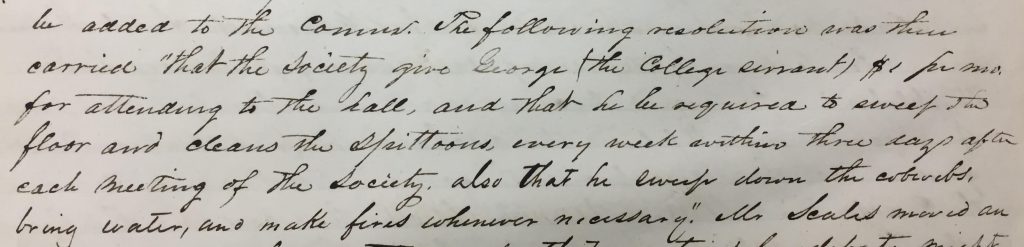 be added to the Comm. The following resolution was then
carried "that the Society give George (the College servant) $1 per mo.
for attending to the hall, and that he be required to sweep the
floor and cleans the spittoons every week within three days after
each meeting of the Society. also that he sweep down the cobwebs.
bring water, and make fires whenever necessary". Mr Scales moved an